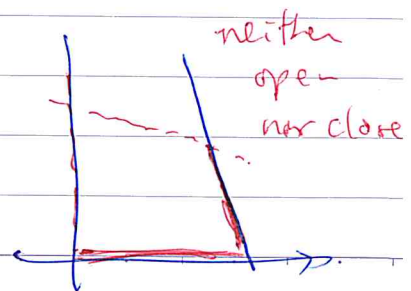 neither
open
nor close